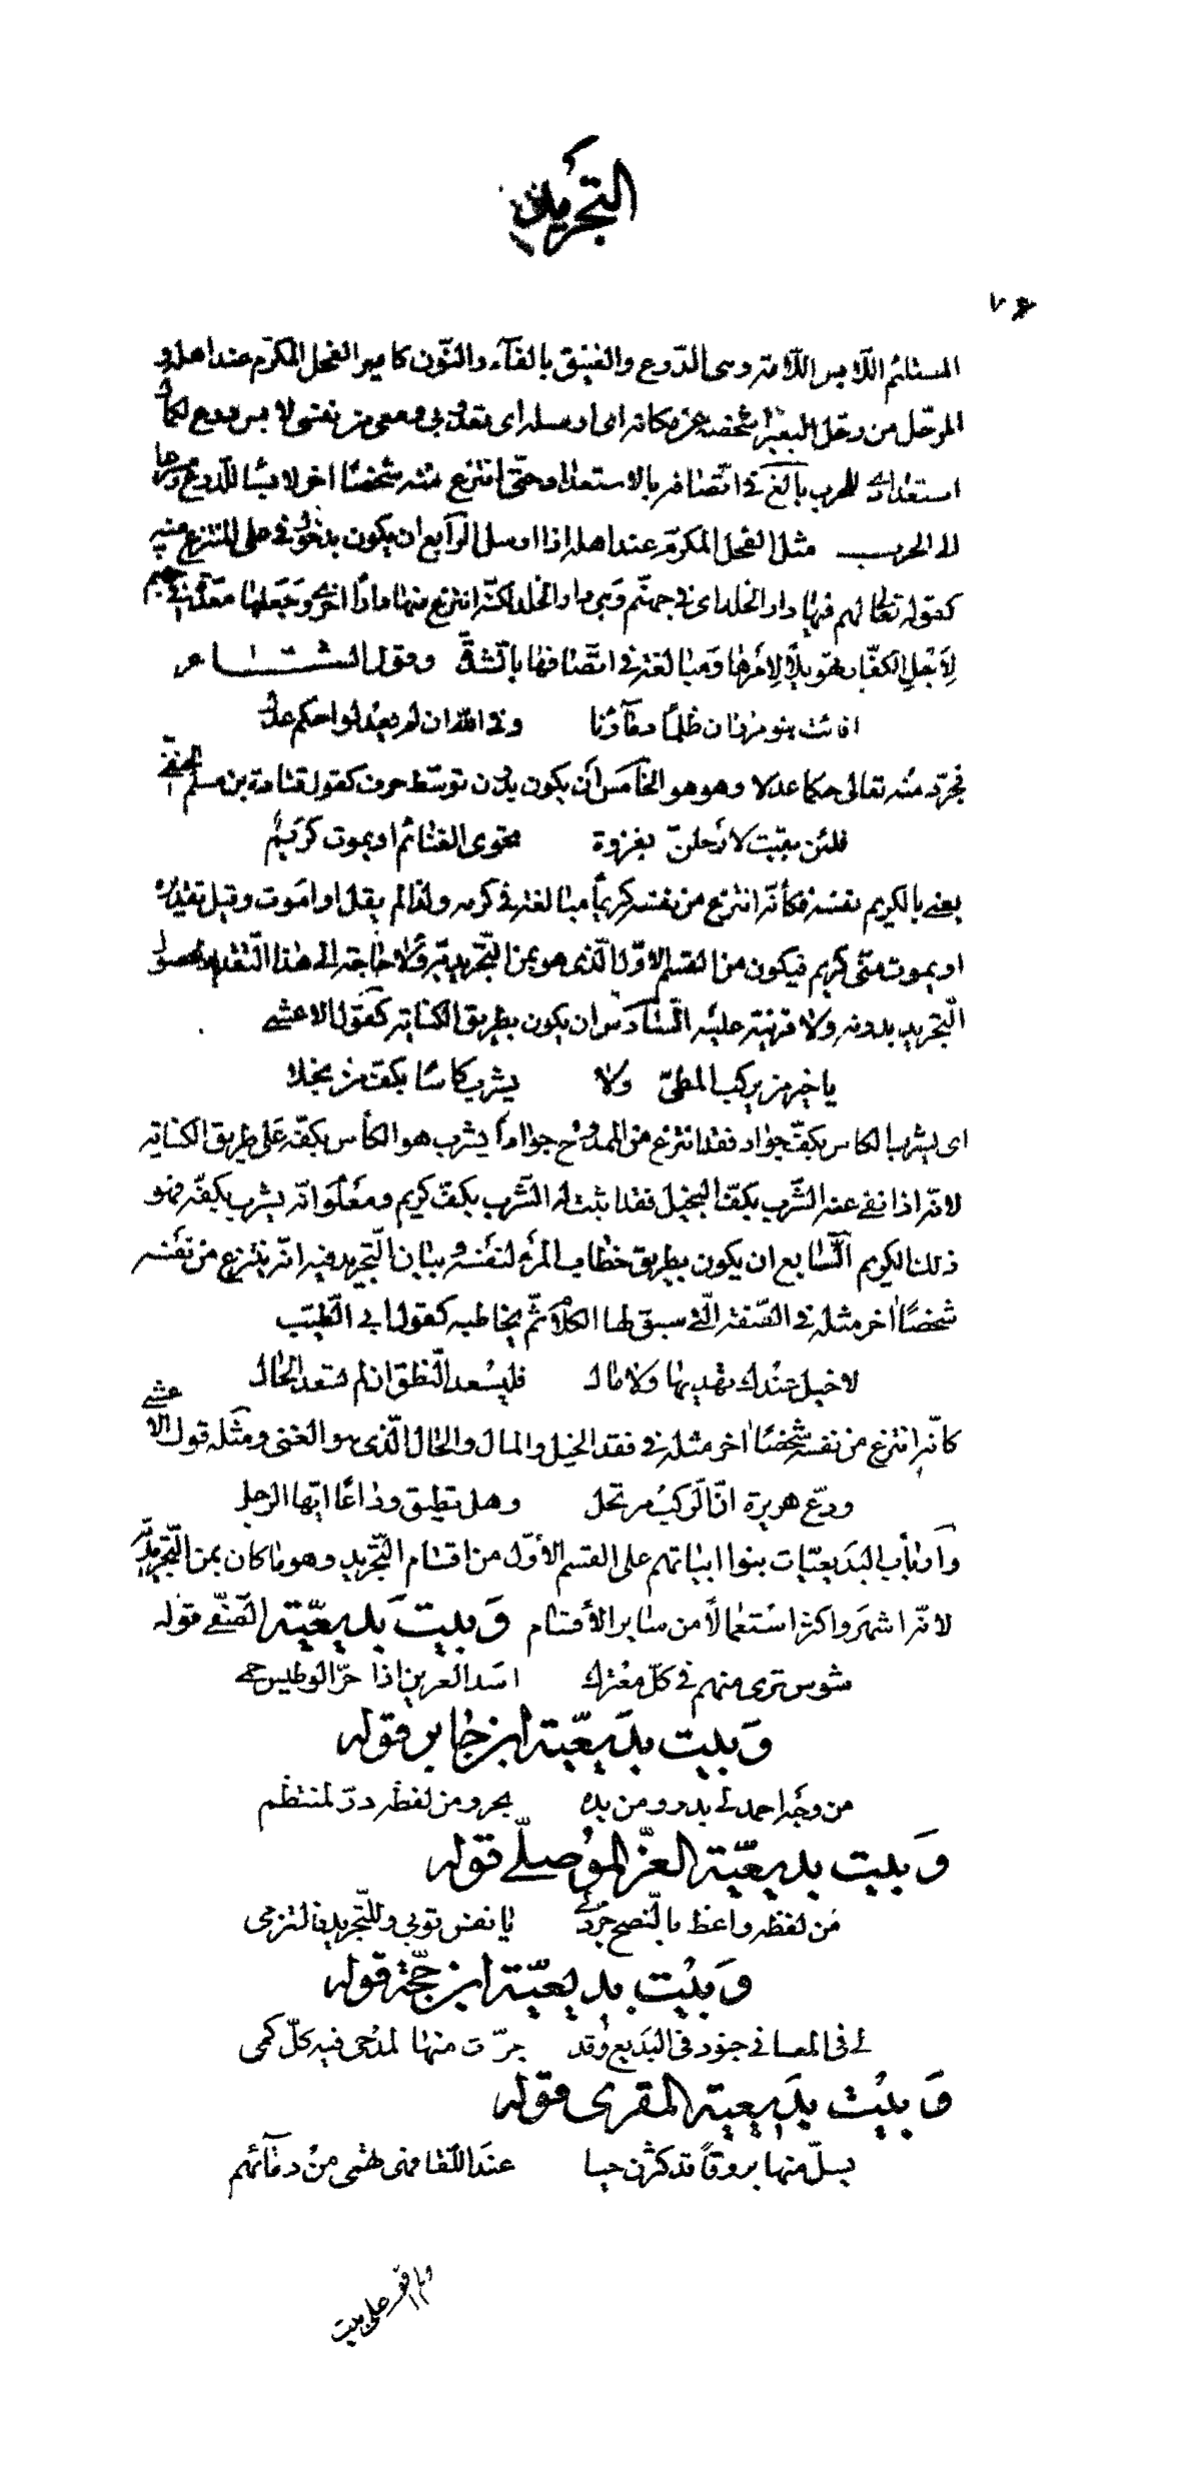 التجريد
٧٦
المستلئم اللابس اللامة وهى الدّرع والفنيق بالفآء والنّون كامير الفحل المكرّم عند اهله و
المرحّل من رحل البعير اشخصه عن مكانه اى ارسله اى تعدو بى ومعى من نفسى لابس درع لكمال
استعداده للحرب بالغ فى اتّصافه بالاستعداد حتّى انتزع منه شخصًا اخر لابسًا للدّرع
الى الحرب مثل الفحل المكرّم عند اهله اذا ارسل الرّابع ان يكون بدخول فى على المنتزع منه
كقوله تعالى لهم فيها دار الخلد اى فى جهنّم وهى دار الخلد لكنّه انتزع منها دارًا اخرى وجعلها معدّة فى جهنم
لاَجْلِ الكفّار تهويلًا لِاَمرِها ومبالغة فى اتّصافها بالشدّة وقول الشاعر
افائت بنو مروان ظلمًا دمآءنا وفى الله ان لم يعدلوا حكم عدل
فجرّد منه تعالى حكما عدلا وهو هو الخامس أن يكون بدون توسّط حرف كقول قتادة بن مسلم الحنفى
فلئن بقيت لارحلنّ بغزوة تحوى الغنائم او يموت كريم
يعنى بالكريم نفسه فكأنّه انتزع من نفسه كريمًا مبالغة فى كرمه ولذا لم يقل او اموت وقيل تقديره
او يموت منّى كريم فيكون من القسم الاوّل الّذى هو بمن التّجريديّة ولا حاجة الى هذا التّقدير لحصول
التّجريد بدونه ولا قرينة عليه السّادس ان يكون بطريق الكناية كقول الاعشى
يا خير من يركب المطىّ ولا يشرب كاسًا بكفّ من بخلا
اى يشرب الكاس بكفّ جواد فقد انتزع من الممدوح جوادًا يشرب هو الكأس بكفّه على طريق الكناية
لانّه اذا نفى عنه الشّرب بكفّ البخيل فقد اثبت له الشّرب بكفّ كريم ومعلوم انّه يشرب بكفّه فهو
ذلك الكريم السّابع ان يكون بطريق خطاب المرء لنفسه وبيان التّجريد فيه انّه ينتزع من نفسه
شخصًا اخر مثله فى الصّفة الّتى سيق لها الكلام ثمّ يخاطبه كقول ابى الطّيّب
لا خيل عندك تهديها ولا مال فليسعد النّطق ان لم تسعد الحال
كانّه انتزع من نفسه شخصًا اخر مثله فى فقد الخيل والمال والحال الّذى هو الغنى ومثله قول الاعشى
ودّع هريرة انّ الركب مرتحل وهل تطيق وداعًا ايّها الرجل
وأرباب البديعيّات بنوا ابياتهم على القسم الأوّل من اقسام التّجريد وهو ما كان بمن التّجريديّة
لانّه اشهر واكثر استعمالًا من ساير الأقسام وبيت بديعيّة الصّفى قوله
شوس ترى منهم فى كلّ معترك اسد العرين اذا حرّ الوطيس حمى
وبيت بديعيّة ابن جابر قوله
من وجه احمد لى بدر ومن يده بحر ومن لفظه درّ لمنتظم
وبيت بديعيّة العزّ الموصلّى قوله
من لفظه واعظ بالنّصح جرّد لى يا نفس توبى وللتّجريد فالتزمى
وبيت بديعيّة ابن حجّة قوله
لى فى المعانى جنود فى البديع وقد جرّدت منها لمدحى فيه كلّ كمى
وبيت بديعية المقرى قوله
يسلّ منها بروقًا قد كثرن حيا عند اللّقا فهى تهمى من دمآئهم